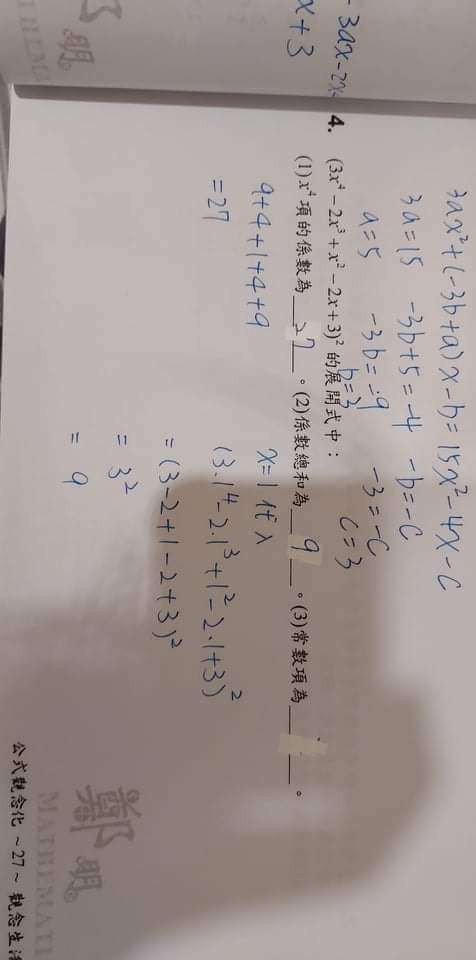 -3ax-2x
x+3
3ax²+(-3b+a)x-b=15x²-4x-c
3a=15 -3b+5=-4 -b=-c
a=5 -3b=-9 -3=-c
b=3 c=3
4. (3x⁴-2x³+x²-2x+3)²的展開式中：
(1)x⁴項的係數為 27 。(2)係數總和為 9 。(3)常數項為 。
9+4+1+4+9
=27
x=1代入
(3·1⁴-2·1³+1²-2·1+3)²
=(3-2+1-2+3)²
=3²
=9
鄭明
MATHEMATI
公式觀念化 ~27~ 觀念生活